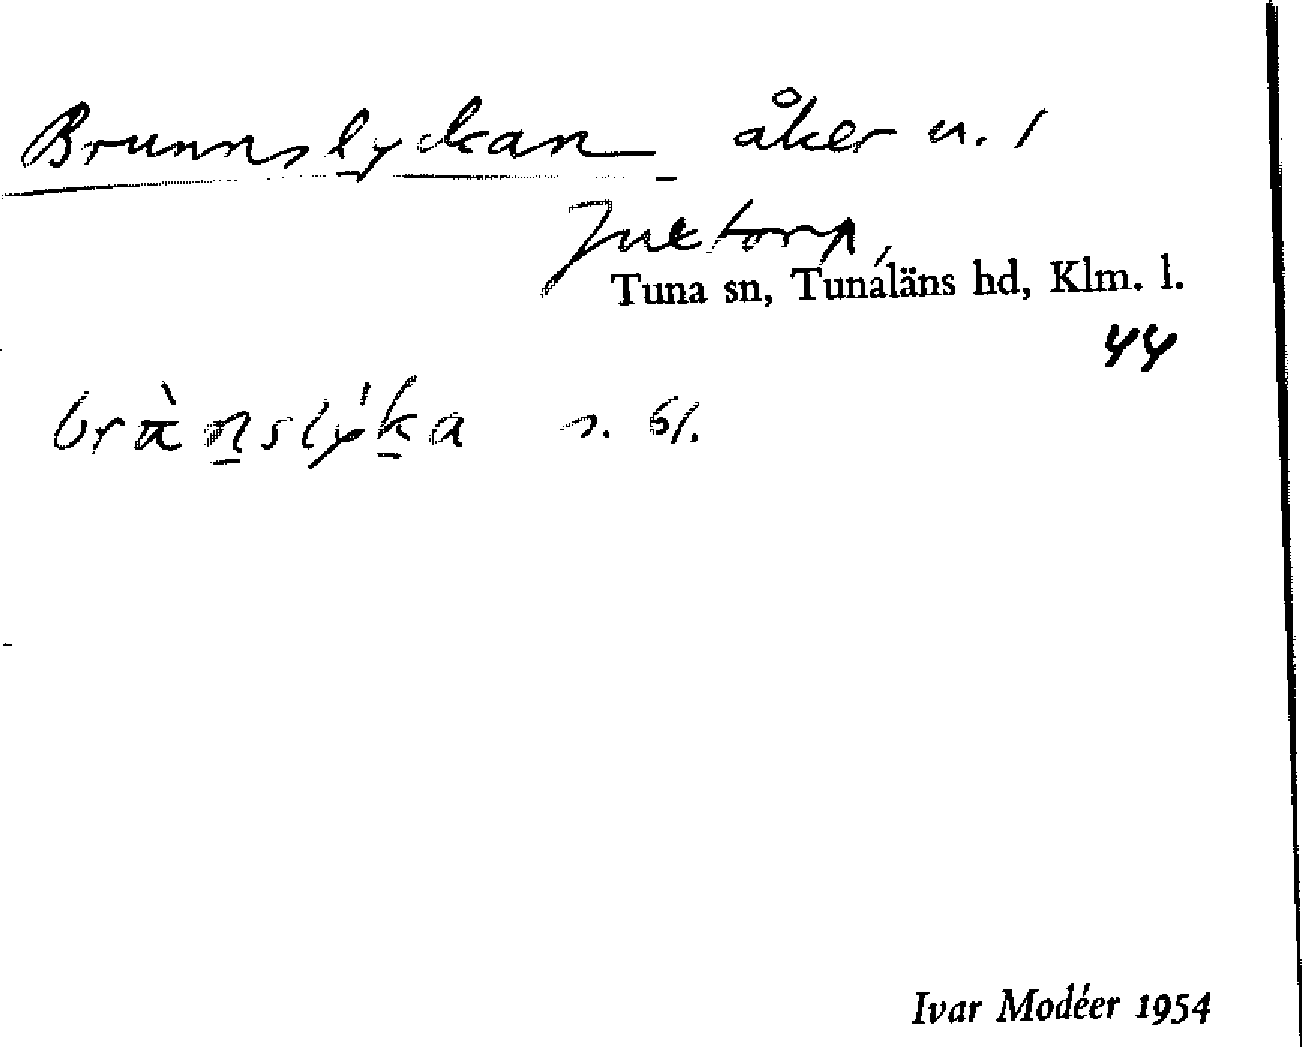 Brunnslyckan åker u. 1
Juktorp,
Tuna sn, Tunaläns hd, Klm. l.
44
s. bl.
Ivar Modéer 1954